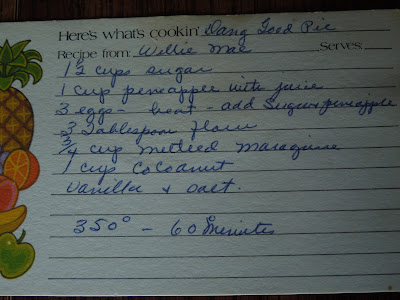 Here's what's cookin' Dang Good Pie
Recipe from: Willie Mae Serves:
1 1/2 cups sugar
1 cup peneapple with juice
3 eggs - beat - add Sugar & peneapple
3 Tablespoon Flour
3/4 cup melteed Maragine
1 cup Cocoanut
Vanilla + Salt.
350° - 60 Minutes